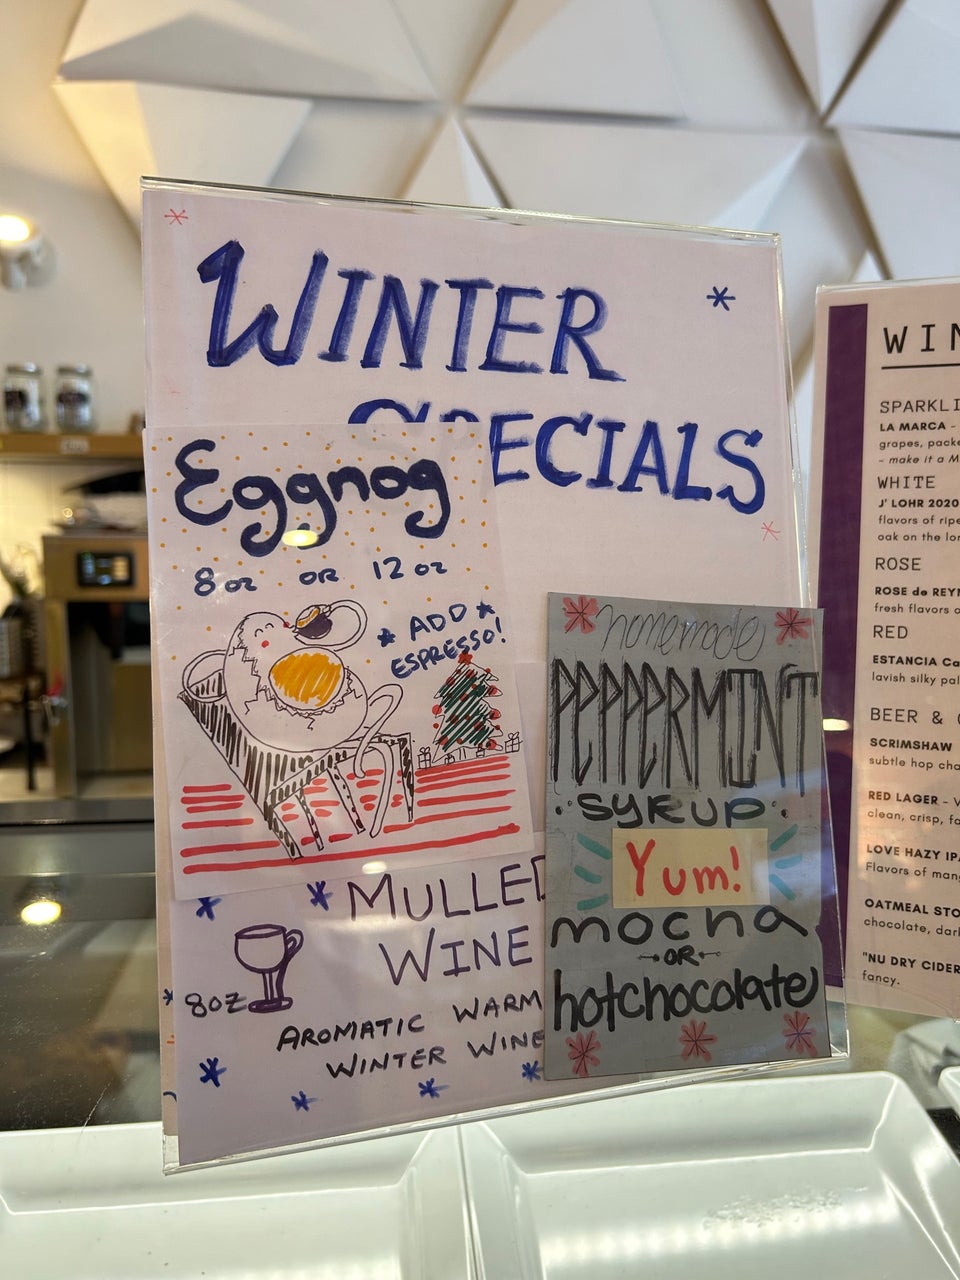 WINTER
SPECIALS
Eggnog
8oz OR 12oz
ADD
ESPRESSO!
MULLED
WINE
8oz
AROMATIC WARM
WINTER WINE
homemade
PEPPPERMINT
SYRUP
Yum!
mocha
OR
hotchocolate
WIN
SPARKLI
LA MARCA -
grapes, packe
- make it a M
WHITE
J' LOHR 2020
flavors of ripe
oak on the lon
ROSE
ROSE de REYN
fresh flavors o
RED
ESTANCIA Ca
lavish silky pal
BEER &
SCRIMSHAW
subtle hop cha
RED LAGER -
clean, crisp, fa
LOVE HAZY IPA
Flavors of mang
OATMEAL STO
chocolate, dark
"NU DRY CIDER
fancy.